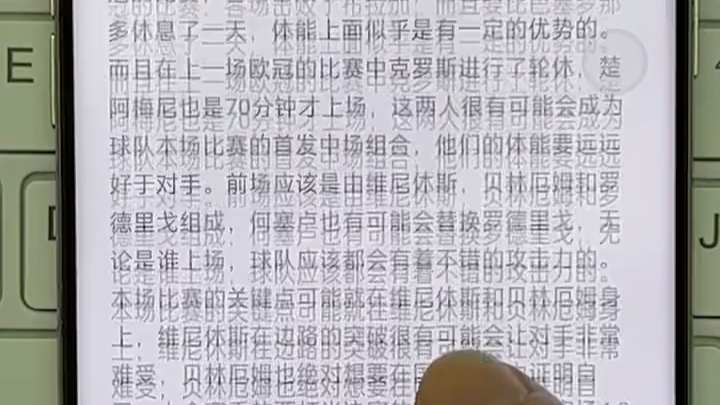 多休息了一天，体能上面似乎是有一定的优势的。
而且在上一场欧冠的比赛中克罗斯进行了轮休，楚
阿梅尼也是70分钟才上场，这两人很有可能会成为
球队本场比赛的首发中场组合，他们的体能要远远
好于对手。前场应该是由维尼休斯，贝林厄姆和罗
德里戈组成，何塞卢也有可能会替换罗德里戈，无
论是谁上场，球队应该都会有着不错的攻击力的。
本场比赛的关键点可能就在维尼休斯和贝林厄姆身
上，维尼休斯在边路的突破很有可能会让对手非常
难受，贝林厄姆也绝对想要在 证明自
E
J